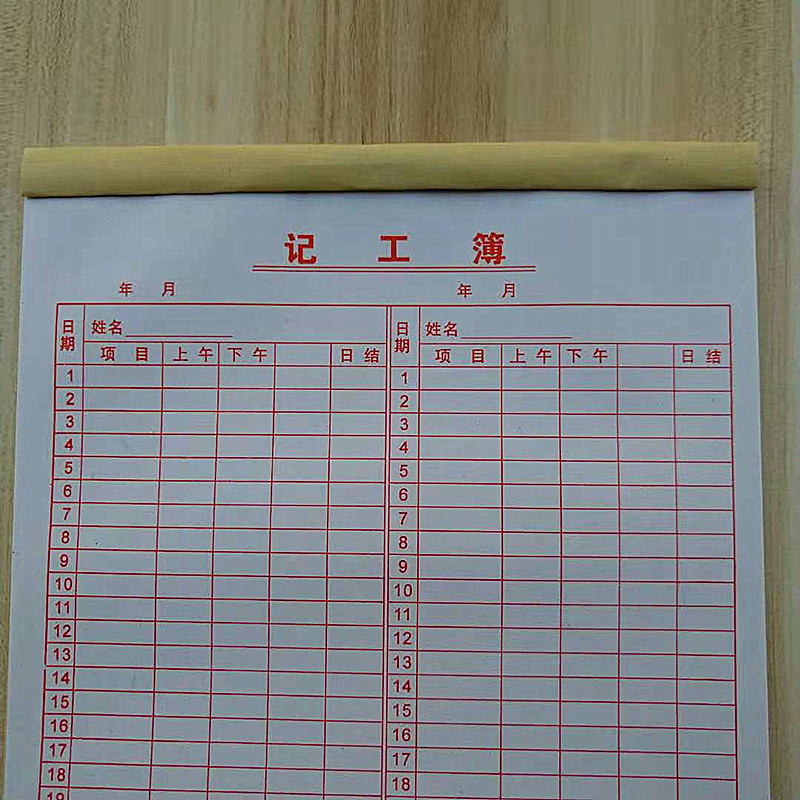 记 工 簿
年 月 年 月
日期 姓名 日期 姓名
项 目 上 午 下 午 日 结 项 目 上 午 下 午 日 结
1 1
2 2
3 3
4 4
5 5
6 6
7 7
8 8
9 9
10 10
11 11
12 12
13 13
14 14
15 15
16 16
17 17
18 18
19